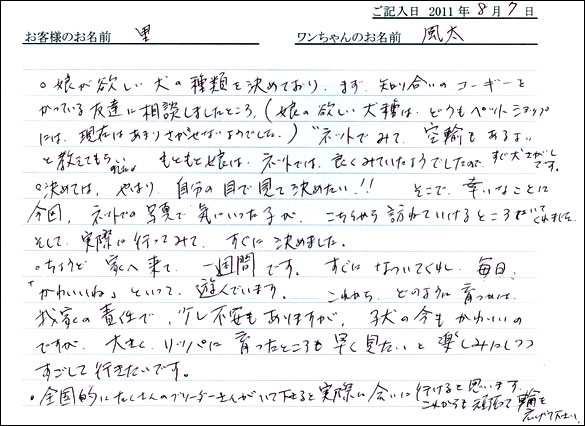 ご記入日 2011年8月7日
お客様のお名前 里 ワンちゃんのお名前 風太
○娘が欲しい犬の種類を決めており、まず、知り合いのコーギーを
かっている友達に相談しましたところ、(娘の欲しい犬種は、どうもペットショップ
には、現在はあまりさがせないようでした。)"ネットでみて、空輸もあるよ"
と教えてもらい、もともと娘は、ネットでは、良くみていたようでしたので、すぐ犬さがしです。
○決めては、やはり、自分の目で見て決めたい!! そこで、幸いなことに
今回、ネットの写真で気にいった子が、こちらから訪ねていけるところにいてくれました。
そして、実際に行ってみて、すぐに決めました。
○ちょうど家へ来て、一週間です。すぐになついてくれ、毎日、
「かわいいね」といって、遊んでいます。これから、どのように育つかは、
我家の責任で、少し不安もありますが、子犬の今もかわいいの
ですが、大きく、リッパに育ったところも早く見たいと楽しみにしつつ
すごして行きたいです。
○全国的にたくさんのブリーダーさんがいて下さると実際に会いに行けると思います。
これからも頑張って輪を
広げて下さい!